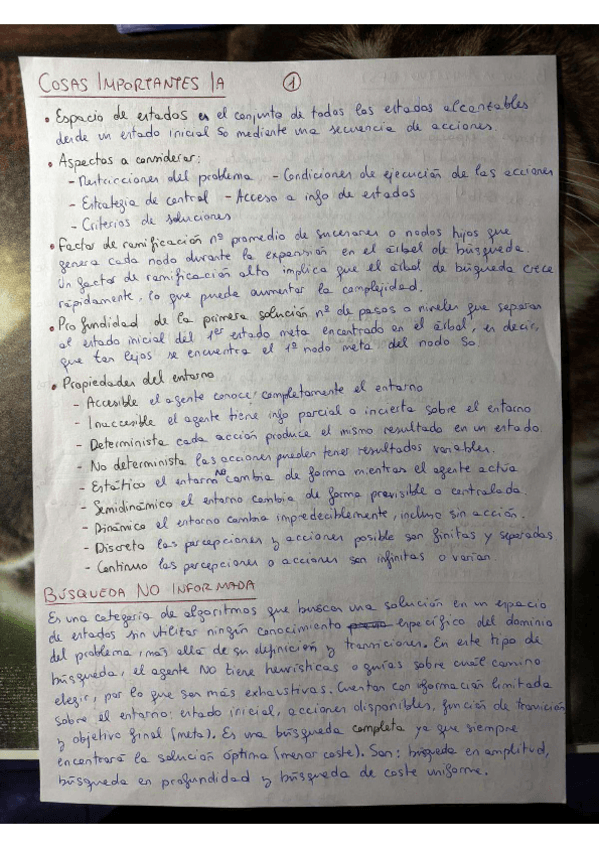 COSAS IMPORTANTES IA 1
• Espacio de estados es el conjunto de todos los estados alcanzables
desde un estado inicial S0 mediante una secuencia de acciones
• Aspectos a considerar:
- Restricciones del problema - Condiciones de ejecución de las acciones
- Estrategia de control - Acceso a info de estados
- Criterios de soluciones
• Factor de ramificación nº promedio de sucesores o nodos hijos que
genera cada nodo durante la expansión en el árbol de búsqueda.
Un factor de ramificación alto implica que el árbol de búsqueda crece
rápidamente, lo que puede aumentar la complejidad.
• Profundidad de la primera solución nº de pasos o niveles que separan
al estado inicial del 1er estado meta encontrado en el árbol, es decir,
que tan lejos se encuentra el 1º nodo meta del nodo S0
• Propiedades del entorno
- Accesible el agente conoce completamente el entorno
- Inaccesible el agente tiene info parcial o incierta sobre el entorno
- Determinista cada acción produce el mismo resultado en un estado.
- No determinista las acciones pueden tener resultados variables.
- Estático el entorno NO cambia de forma mientras el agente actúa
- Semidinámico el entorno cambia de forma previsible o controlada.
- Dinámico el entorno cambia impredeciblemente, incluso sin acción.
- Discreto las percepciones y acciones posible son finitas y separadas
- Continuo las percepciones o acciones son infinitas o varían
BÚSQUEDA NO INFORMADA
Es una categoría de algoritmos que buscan una solución en un espacio
de estados sin utilizar ningún conocimiento específico del dominio
del problema, más allá de su definición y transiciones. En este tipo de
búsqueda, el agente NO tiene heurísticas o guías sobre cuál camino
elegir, por lo que son más exhaustivas. Cuentan con información limitada
sobre el entorno: estado inicial, acciones disponibles, función de transición
y objetivo final (meta). Es una búsqueda completa ya que siempre
encontrará la solución óptima (menor coste). Son: búsqueda en amplitud,
búsqueda en profundidad y búsqueda de coste uniforme.